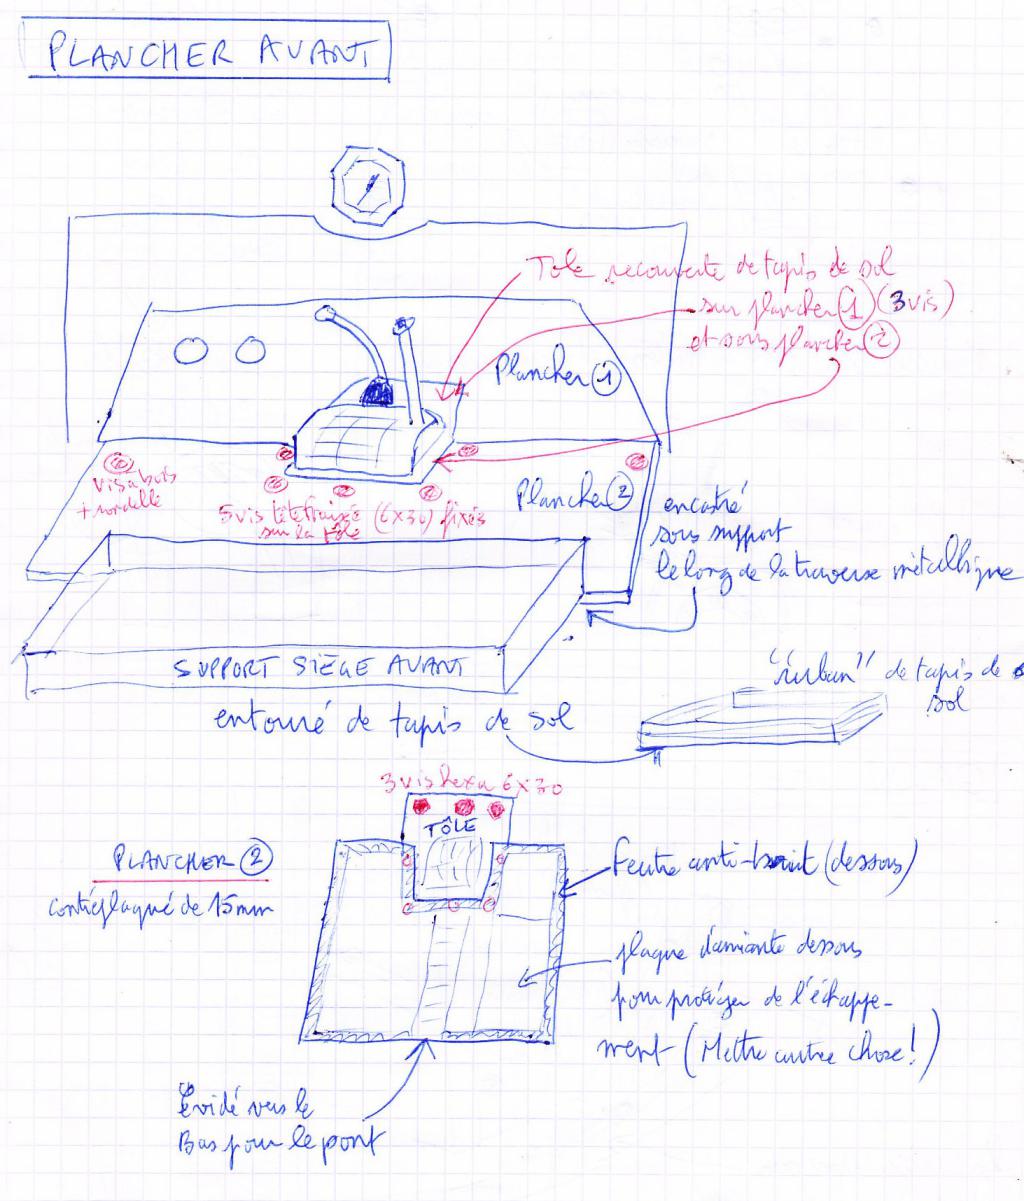 PLANCHER AVANT
Tôle recouverte de tapis de sol
sur plancher 1 (3 vis)
et sous plancher 2
Plancher 1
vis à bois
+ rondelle
5 vis tête fraisée (6x30) fixés
sur la tôle
Plancher 2
encastré
sous support
le long de la traverse métallique
SUPPORT SIÈGE AVANT
"ruban" de tapis de
sol
entouré de tapis de sol
3 vis hexa 6x30
TÔLE
PLANCHER 2
contreplaqué de 15mm
Feutre anti-bruit (dessous)
plaque d'amiante dessous
pour protéger de l'échappe-
ment (Mettre autre chose!)
Évidé vers le
Bas pour le pont